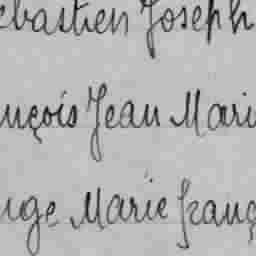 ebastien Joseph
nçois Jean Mari
uge Marie franç